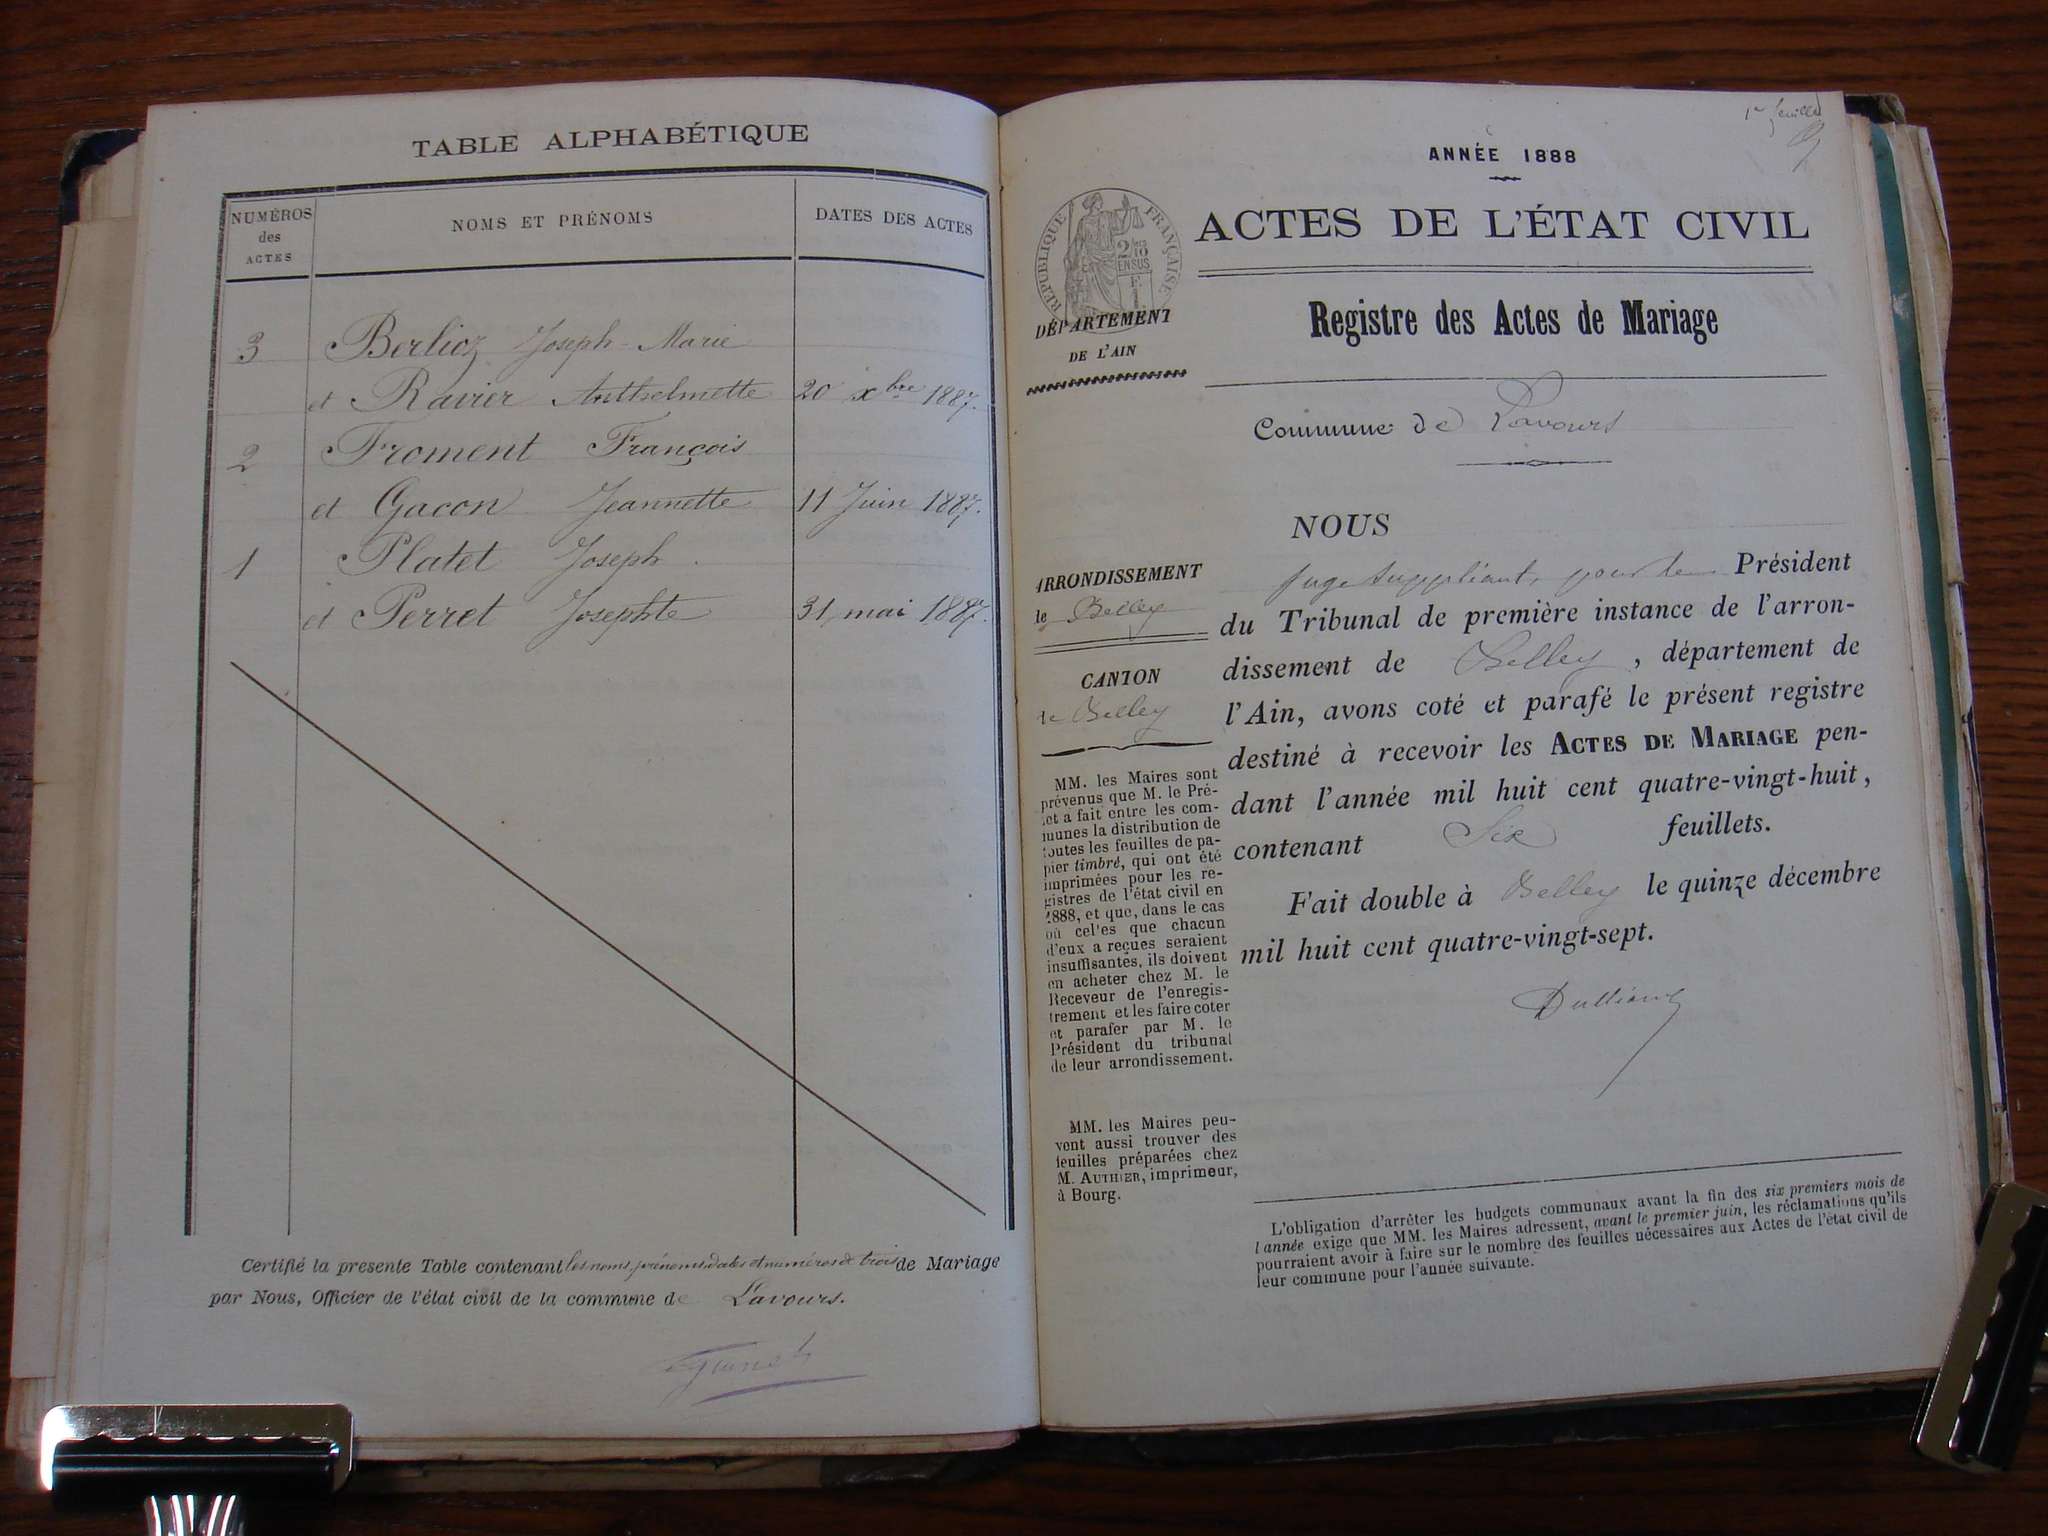 TABLE ALPHABÉTIQUE
NUMÉROS
des
ACTES
NOMS ET PRÉNOMS
DATES DES ACTES
3 Berlioz Joseph-Marie
et Ravier Anthelmette 20 xbre 1887.
2 Froment François
et Gacon Jeannette 11 Juin 1887.
1 Platet Joseph
et Perret Josephte 31, mai 1887.
Certifié la presente Table contenant les noms, prénoms, dates et numéros de trois de Mariage
par Nous, Officier de l'état civil de la commune de Lavours.
1er feuillet
ANNÉE 1888
RÉPUBLIQUE FRANÇAISE
2/10
EN SUS
1 F.
ACTES DE L'ÉTAT CIVIL
DÉPARTEMENT
DE L'AIN
Registre des Actes de Mariage
Commune de Lavours
ARRONDISSEMENT
de Belley
CANTON
de Belley
MM. les Maires sont
prévenus que M. le Pré-
fet a fait entre les com-
munes la distribution de
toutes les feuilles de pa-
pier timbré, qui ont été
imprimées pour les re-
gistres de l'état civil en
1888, et que, dans le cas
où cel'es que chacun
d'eux a reçues seraient
insuffisantes, ils doivent
en acheter chez M. le
Receveur de l'enregis-
trement et les faire coter
et parafer par M. le
Président du tribunal
de leur arrondissement.
MM. les Maires peu-
vent aussi trouver des
feuilles préparées chez
M. AUTHIER, imprimeur,
à Bourg.
NOUS
Juge Suppléant, pour le Président
du Tribunal de première instance de l'arron-
dissement de Belley, département de
l'Ain, avons coté et parafé le présent registre
destiné à recevoir les ACTES DE MARIAGE pen-
dant l'année mil huit cent quatre-vingt-huit,
contenant Six feuillets.
Fait double à Belley le quinze décembre
mil huit cent quatre-vingt-sept.
L'obligation d'arrêter les budgets communaux avant la fin des six premiers mois de
l'année exige que MM. les Maires adressent, avant le premier juin, les réclamations qu'ils
pourraient avoir à faire sur le nombre des feuilles nécessaires aux Actes de l'état civil de
leur commune pour l'année suivante.